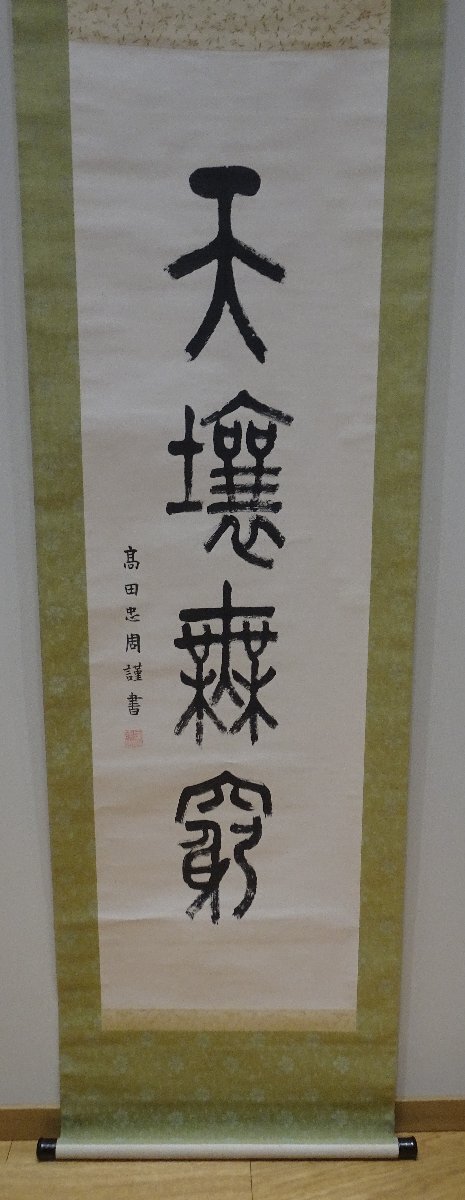 天壤無窮
髙田忠周謹書